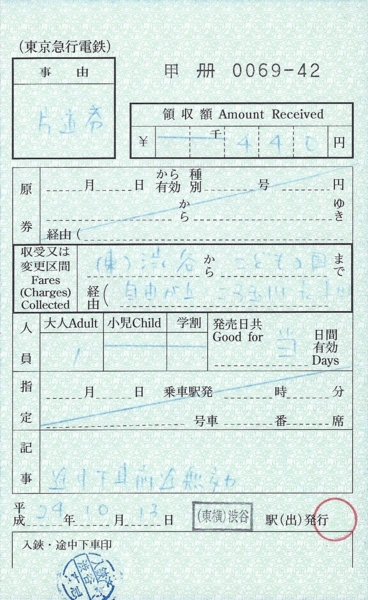 (東京急行電鉄)
事由
甲 册 0069-42
片道券
領収額 Amount Received
¥ 千 440 円
原券
月 日 から有効 種別 号 円
から ゆき
経由(
収受又は変更区間 Fares (Charges) Collected
(東)渋谷 から こどもの国 まで
経由( 自由が丘 二子玉川
人員
大人Adult 小児Child 学割 発売日共 Good for 当 日間有効 Days
1
指定
月 日 乗車駅発 時 分
号車 番 席
記事
途中下車前途無効
平成 29 年 10 月 13 日 (東横)渋谷 駅(出)発行
入鋏・途中下車印